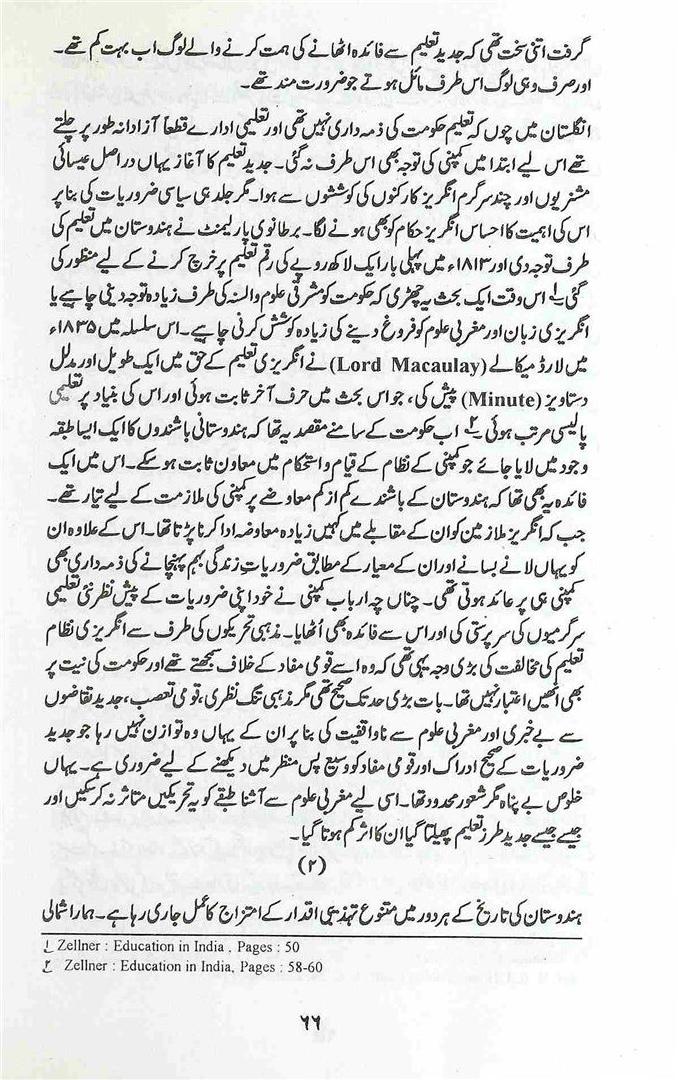 گرفت اتنی سخت تھی کہ جدید تعلیم سے فائدہ اٹھانے کی ہمت کرنے والے لوگ اب بہت کم تھے۔
اور صرف وہی لوگ اس طرف مائل ہوتے جو ضرورت مند تھے۔
انگلستان میں چوں کہ تعلیم حکومت کی ذمہ داری نہیں تھی اور تعلیمی ادارے قطعاً آزادانہ طور پر چلتے
تھے اس لیے ابتدا میں کمپنی کی توجہ بھی اس طرف نہ گئی۔ جدید تعلیم کا آغاز یہاں دراصل عیسائی
مشنریوں اور چند سرگرم انگریز کارکنوں کی کوششوں سے ہوا۔ مگر جلد ہی سیاسی ضروریات کی بنا پر
اس کی اہمیت کا احساس انگریز حکام کو بھی ہونے لگا۔ برطانوی پارلیمنٹ نے ہندوستان میں تعلیم کی
طرف توجہ دی اور ۱۸۱۳ء میں پہلی بار ایک لاکھ روپے کی رقم تعلیم پر خرچ کرنے کے لیے منظور کی
گئی۱؎ اس وقت ایک بحث یہ چھڑی کہ حکومت کو مشرقی علوم والسنہ کی طرف زیادہ توجہ دینی چاہیے یا
انگریزی زبان اور مغربی علوم کو فروغ دینے کی زیادہ کوشش کرنی چاہیے۔ اس سلسلہ میں ۱۸۳۵ء
میں لارڈ میکالے (Lord Macaulay) نے انگریزی تعلیم کے حق میں ایک طویل اور مدلل
دستاویز (Minute) پیش کی، جو اس بحث میں حرف آخر ثابت ہوئی اور اس کی بنیاد پر تعلیمی
پالیسی مرتب ہوئی۲؎ اب حکومت کے سامنے مقصد یہ تھا کہ ہندوستانی باشندوں کا ایک ایسا طبقہ
وجود میں لایا جائے جو کمپنی کے نظام کے قیام و استحکام میں معاون ثابت ہو سکے۔ اس میں ایک
فائدہ یہ بھی تھا کہ ہندوستان کے باشندے کم از کم معاوضے پر کمپنی کی ملازمت کے لیے تیار تھے۔
جب کہ انگریز ملازمین کو ان کے مقابلے میں کہیں زیادہ معاوضہ ادا کرنا پڑتا تھا۔ اس کے علاوہ ان
کو یہاں لانے بسانے اور ان کے معیار کے مطابق ضروریاتِ زندگی بہم پہنچانے کی ذمہ داری بھی
کمپنی ہی پر عائد ہوتی تھی۔ چناں چہ ارباب کمپنی نے خود اپنی ضروریات کے پیش نظر نئی تعلیمی
سرگرمیوں کی سرپرستی کی اور اس سے فائدہ بھی اُٹھایا۔ مذہبی تحریکوں کی طرف سے انگریزی نظام
تعلیم کی مخالفت کی بڑی وجہ یہی تھی کہ وہ اسے قومی مفاد کے خلاف سمجھتے تھے اور حکومت کی نیت پر
بھی انھیں اعتبار نہیں تھا۔ بات بڑی حد تک صحیح تھی مگر مذہبی تنگ نظری، قومی تعصب، جدید تقاضوں
سے بے خبری اور مغربی علوم سے ناواقفیت کی بنا پر ان کے یہاں وہ توازن نہیں رہا جو جدید
ضروریات کے صحیح ادراک اور قومی مفاد کو وسیع پس منظر میں دیکھنے کے لیے ضروری ہے۔ یہاں
خلوص بے پناہ مگر شعور محدود تھا۔ اسی لیے مغربی علوم سے آشنا طبقے کو یہ تحریکیں متاثر نہ کر سکیں اور
جیسے جیسے جدید طرز تعلیم پھیلتا گیا ان کا اثر کم ہوتا گیا۔
(۲)
ہندوستان کی تاریخ کے ہر دور میں متنوع تہذیبی اقدار کے امتزاج کا عمل جاری رہا ہے۔ ہمارا شمالی
۱؎ Zellner : Education in India , Pages : 50
۲؎ Zellner : Education in India, Pages : 58-60
۶۶